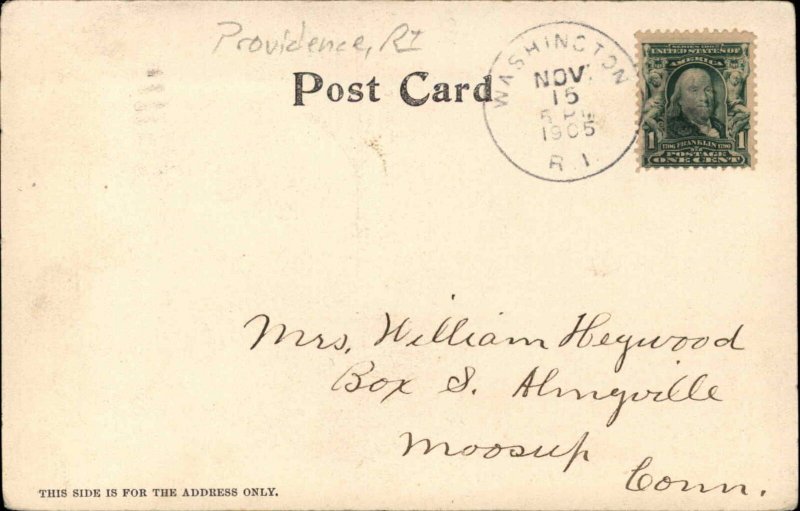 Providence, RI
Post Card
WASHINGTON
NOV.
15
1905
R.I.
SERIES 1902
UNITED STATES OF
AMERICA
1706 FRANKLIN 1790
1 POSTAGE 1
ONE CENT
Mrs. William Heywood
Box S. Almyville
Moosup
Conn.
THIS SIDE IS FOR THE ADDRESS ONLY.